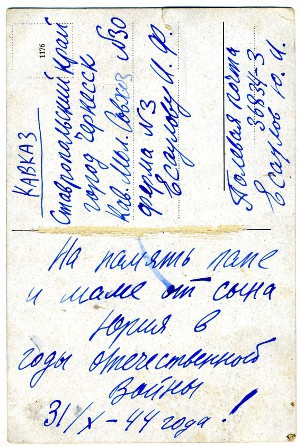 КАВКАЗ
1176
Ставропольский край
город Черкесск
Кав. Мол. Совхоз №30
ферма №3
Есаулову И. Ф.
Полевая почта
36834-З
Есаулов Ю. И.
На память папе
и маме от сына
Юрия в
годы отечественной
войны
31/X-44 года!